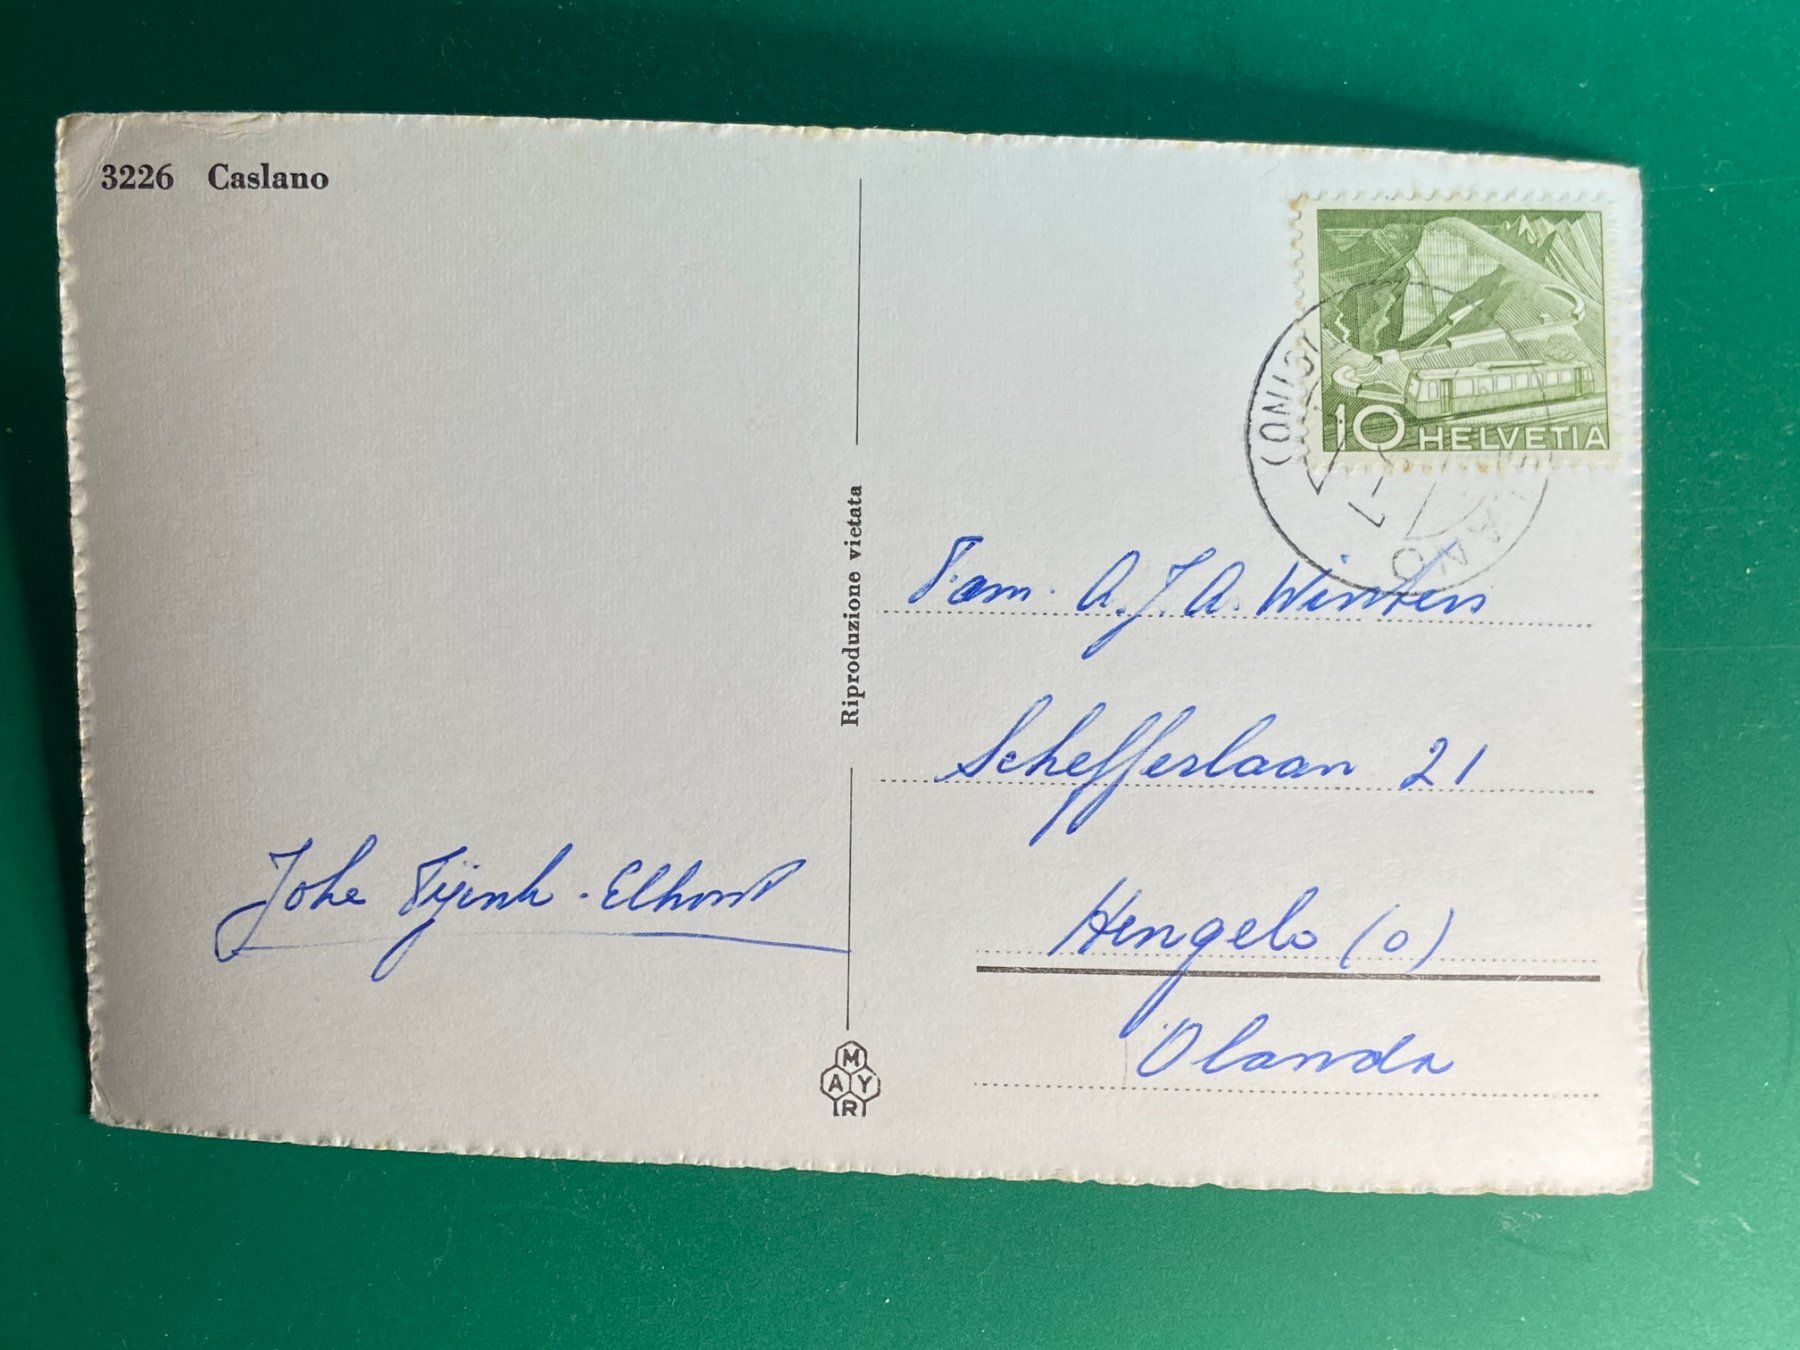 3226 Caslano
10 HELVETIA
(TICINO)
Riproduzione vietata
Fam. A. J. A. Winters
Schefferlaan 21
Hengelo (O)
Olanda
Johe Tijink - Elhorst
MAYR